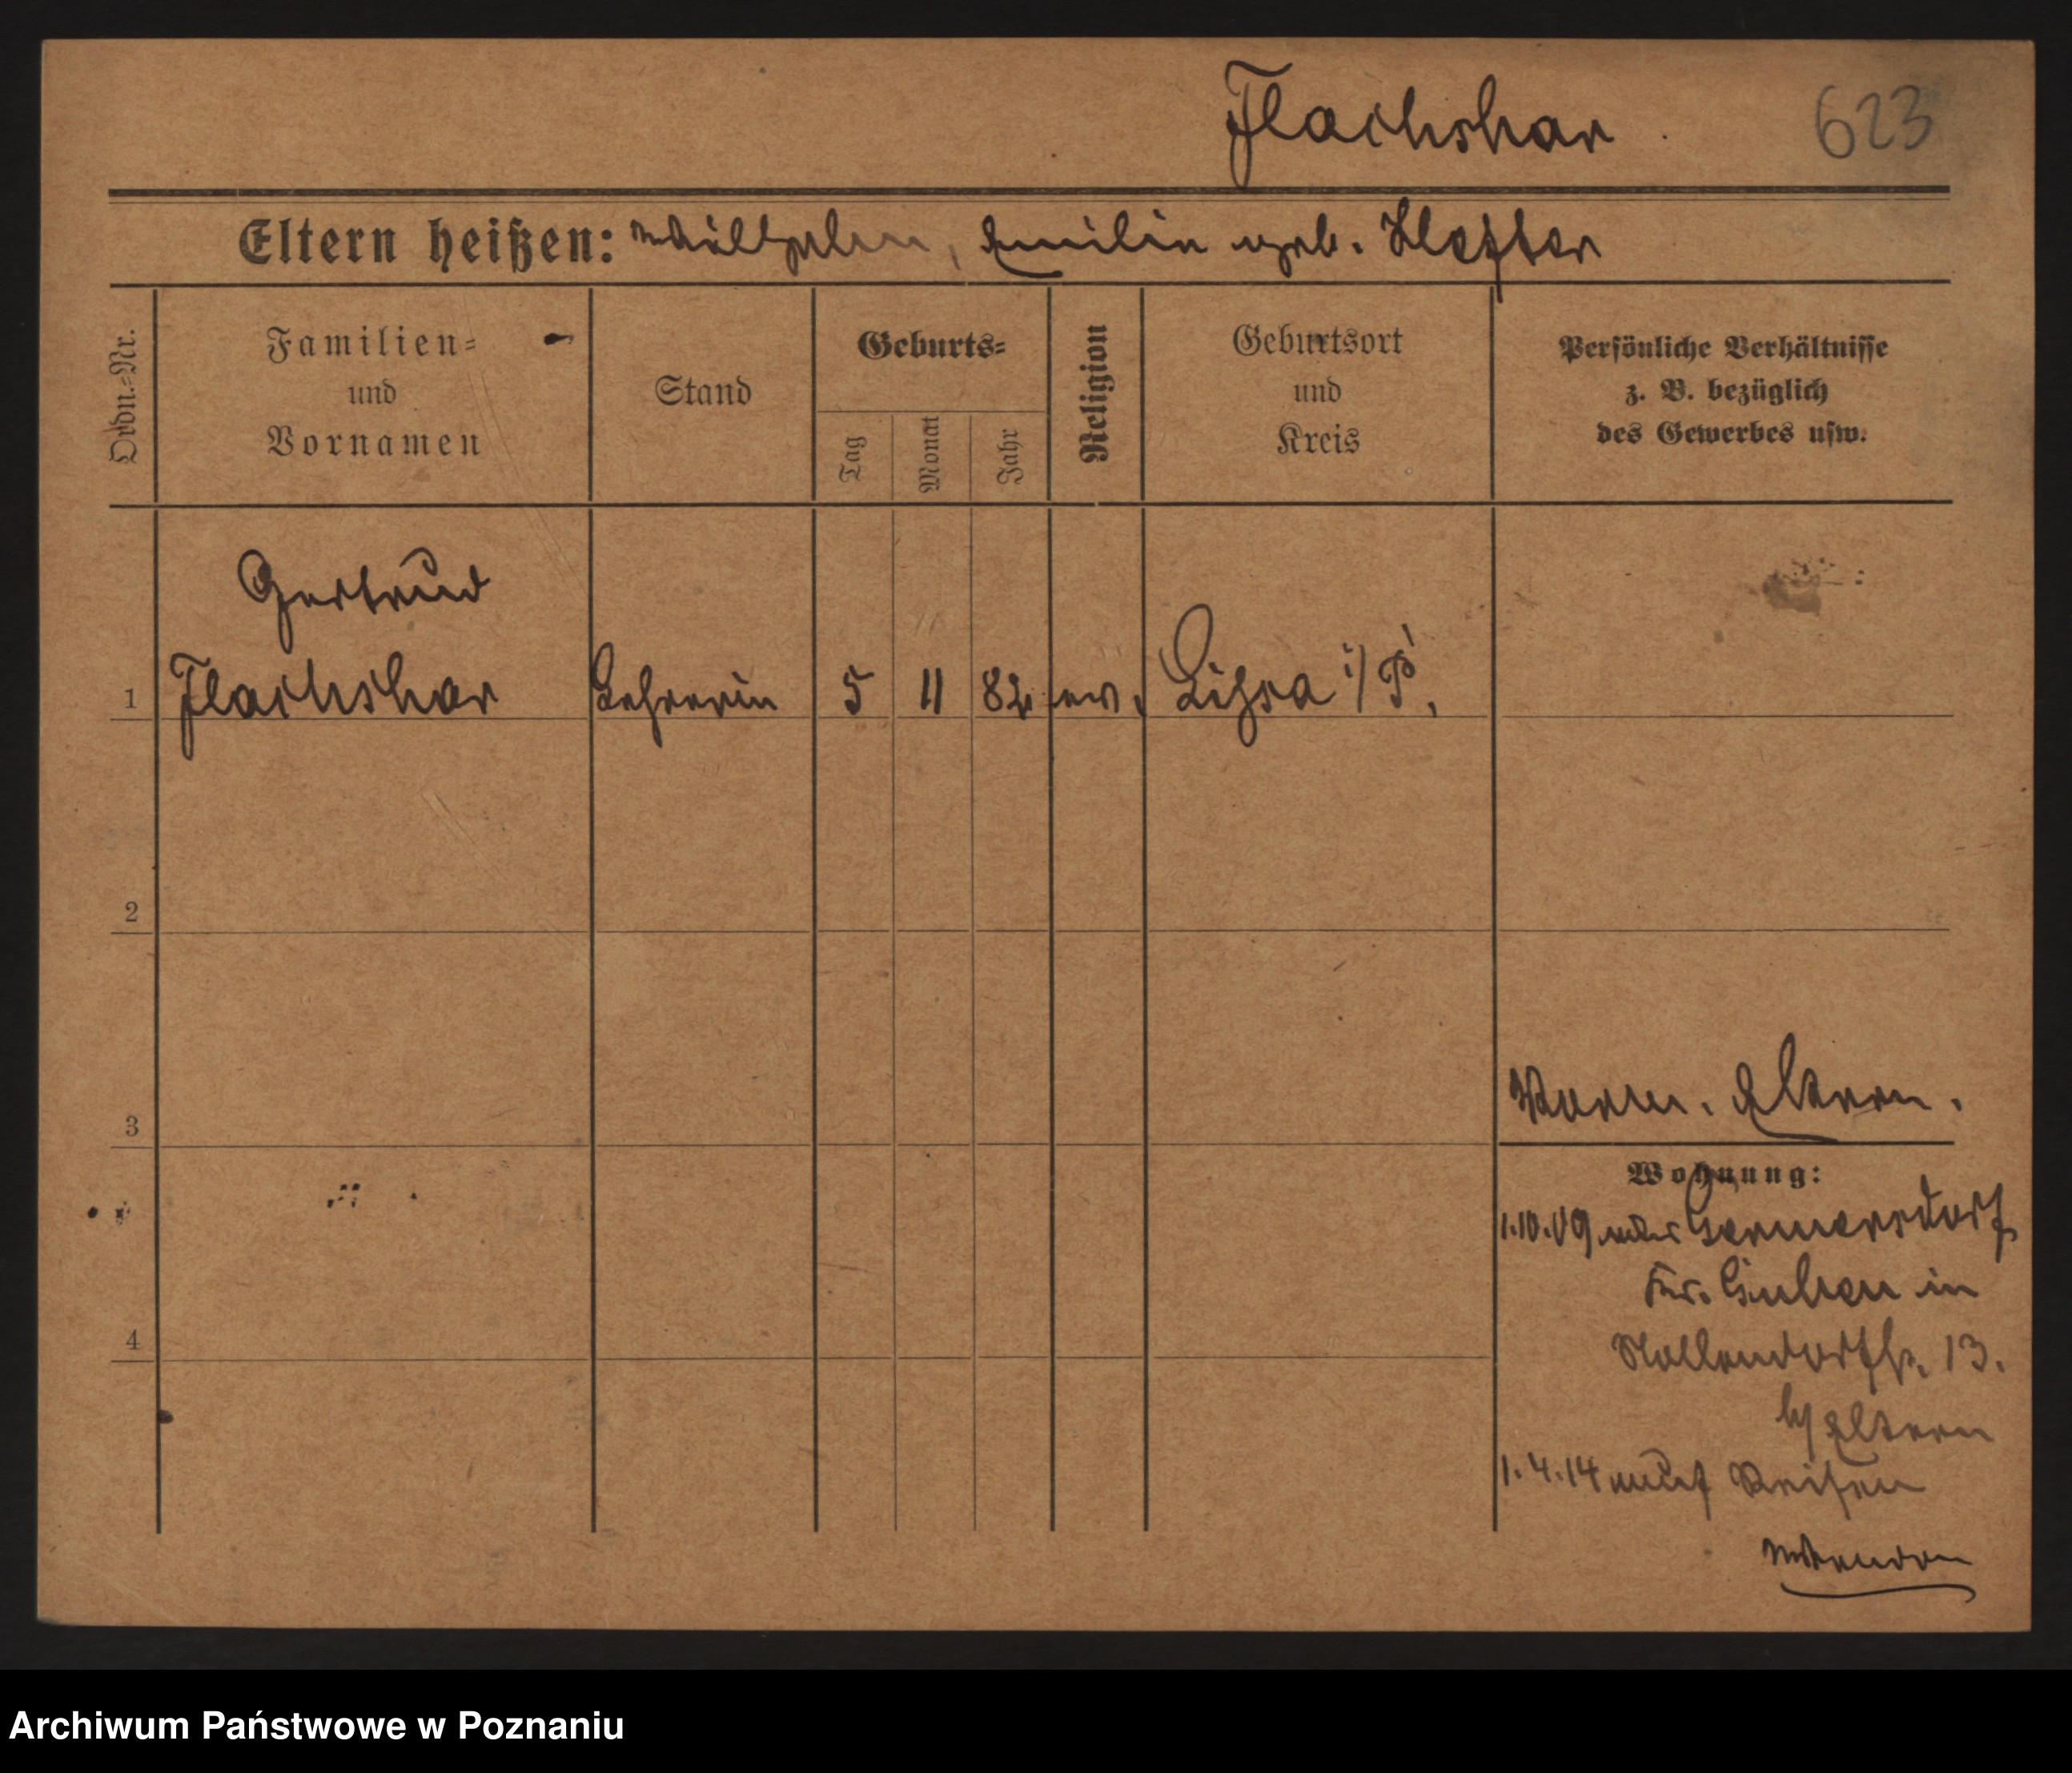 Flachshar
623
Eltern heißen: Wilhelm, Emilie geb. Klefter
Ordn.-Nr.
Familien-
und
Vornamen
Stand
Geburts-
Tag
Monat
Jahr
Religion
Geburtsort
und
Kreis
Persönliche Verhältnisse
z. B. bezüglich
des Gewerbes usw.
Gertrud
1 Flachshar Lehrerin 5 11 82 ev. Lissa i/P.
2
3
Eltern.
Wohnung:
1.10.09 aus Germersdorf
Kr. Guben in
Nollendorfstr. 13.
b/Eltern
4
1.4.14 auf Reisen
Archiwum Państwowe w Poznaniu